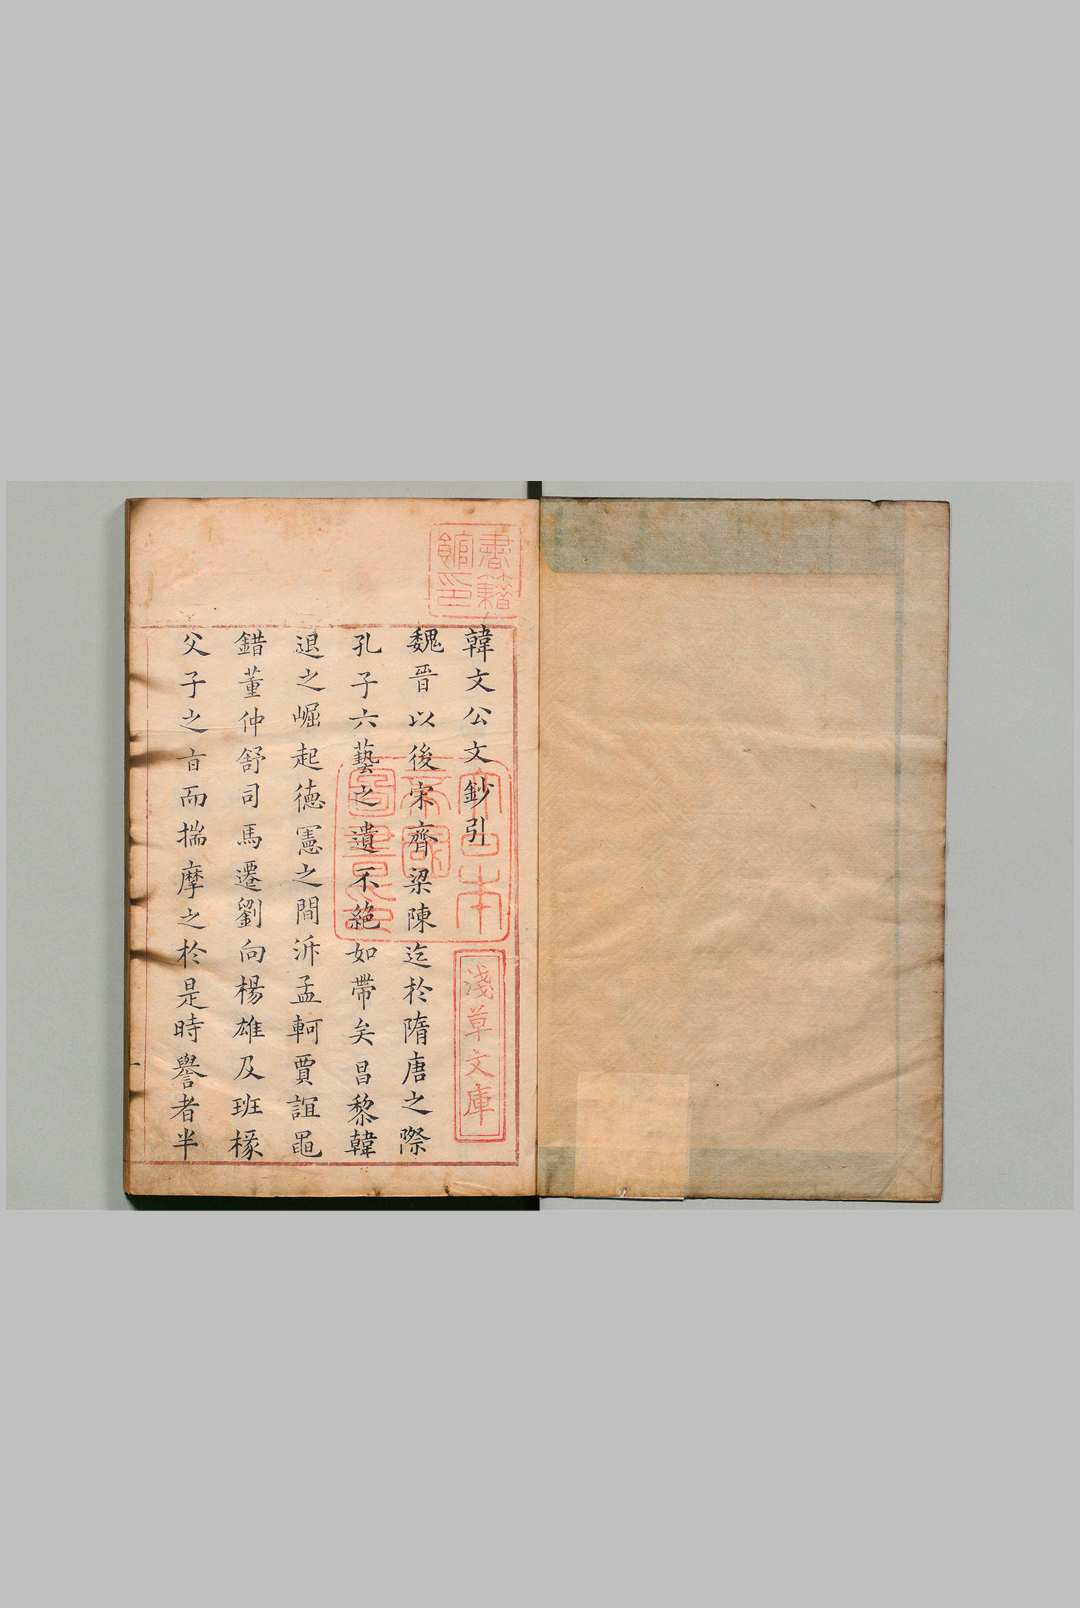 韓文公文鈔引
魏晉以後宋齊梁陳迄於隋唐之際
孔子六藝之遺不絶如帶矣昌黎韓
退之崛起德憲之間泝孟軻賈誼鼂
錯董仲舒司馬遷劉向楊雄及班椽
父子之旨而揣摩之於是時譽者半
書籍
館印
日本
帝國
圖書印
淺草文庫